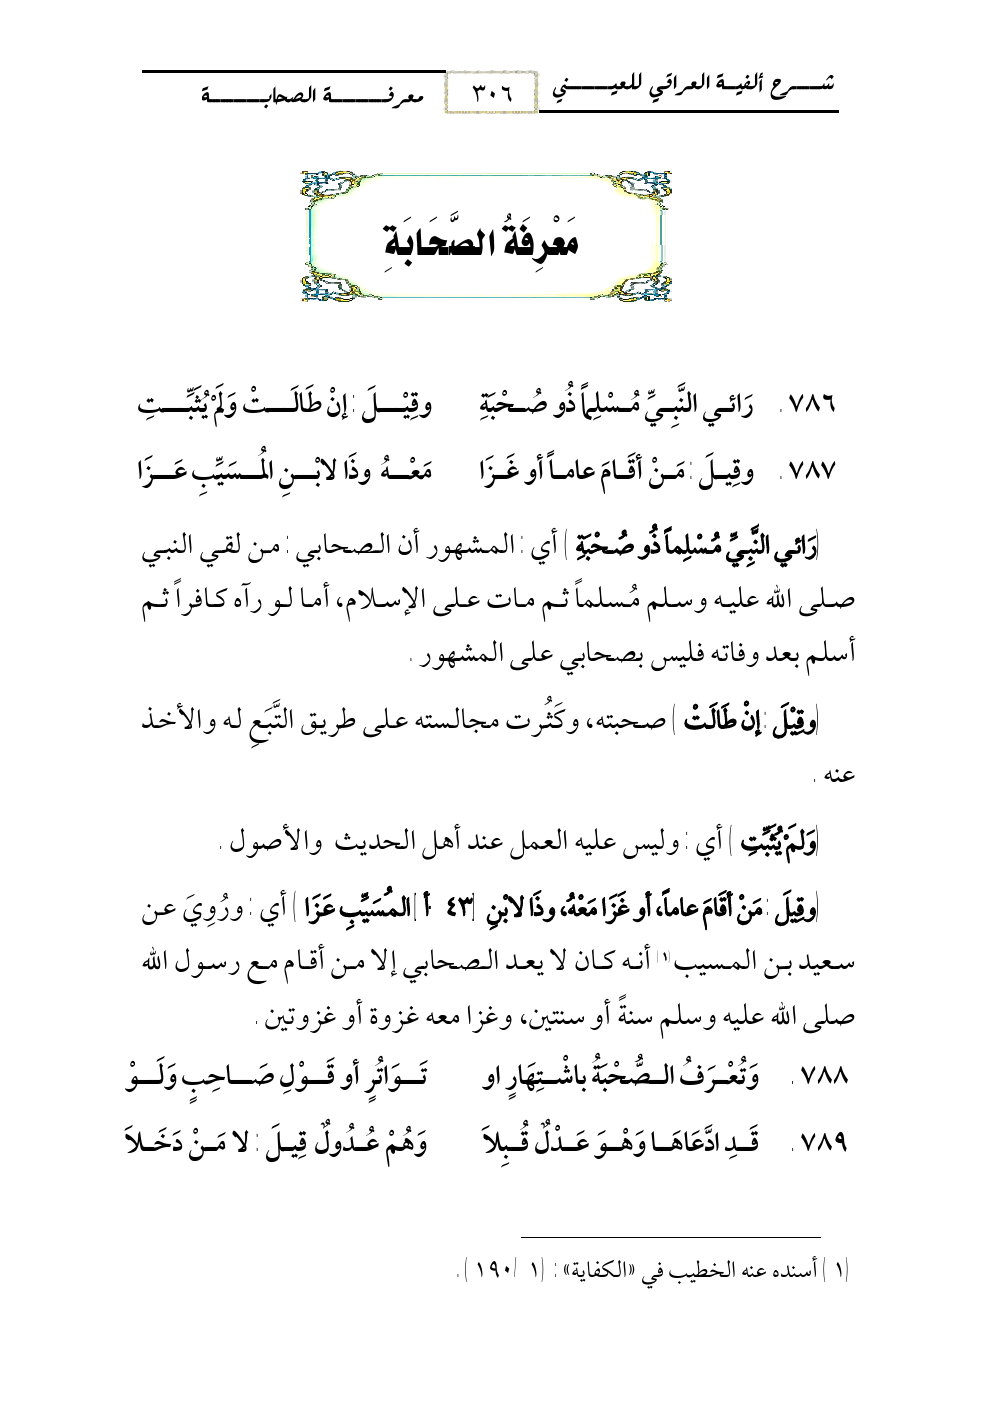 شـــرح ألفيـة العراقي للعيـــــني
٣٠٦
معرفـــــــة الصحابـــــــة
مَعْرِفَةُ الصَّحَابَةِ
٧٨٦. رَائـي النَّبِـيِّ مُـسْلِماً ذُو صُـحْبَةِ وقِيْـــلَ : إنْ طَالَـــتْ وَلَمْ يُثَبِّـــتِ
٧٨٧. وقِيـلَ : مَـنْ أقَـامَ عامـاً أو غَـزَا مَعْـــهُ وذَا لابْـــنِ الُمـسَيِّبِ عَـــزَا
(رَائي النَّبِيِّ مُسْلِماً ذُو صُحْبَةِ ) أي : المشهور أن الصحابي : من لقي النبي
صلى الله عليه وسلم مُسلماً ثم مات على الإسلام، أما لو رآه كافراً ثم
أسلم بعد وفاته فليس بصحابي على المشهور .
(وقِيْلَ : إنْ طَالَتْ ) صحبته، وكَثُرت مجالسته على طريق التَّبَعِ له والأخذ
عنه .
(وَلَمْ يُثَبَّتِ ) أي : وليس عليه العمل عند أهل الحديث والأصول .
(وقِيلَ : مَنْ أقَامَ عاماً، أو غَزَا مَعْهُ، وذَا لابْنِ [٤٣ أ] المُسَيِّبِ عَزَا ) أي : ورُوِيَ عن
سعيد بن المسيب(١) أنه كان لا يعد الصحابي إلا من أقام مع رسول الله
صلى الله عليه وسلم سنةً أو سنتين، وغزا معه غزوة أو غزوتين .
٧٨٨. وَتُعْـرَفُ الـصُّحْبَةُ باشْـتِهَارٍ او تَـــوَاتُرٍ أو قَـــوْلِ صَـــاحِبٍ وَلَـــوْ
٧٨٩. قَـدِ ادَّعَاهَـا وَهْـوَ عَـدْلٌ قُـبِلاَ وَهُمْ عُـدُولٌ قِيـلَ : لا مَـنْ دَخَـلاَ
(١ ) أسنده عنه الخطيب في «الكفاية» : (١ /١٩٠ ) .